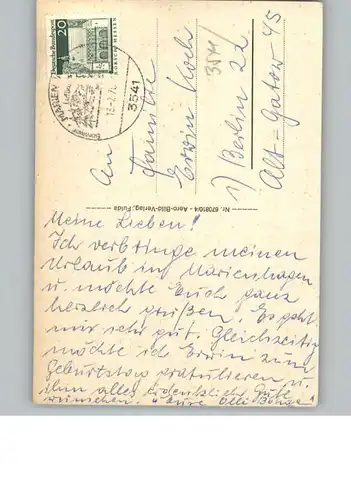 Deutsche Bundespost
20
LORSCH/HESSEN
3541
3541
An
Familie
Erwin Koch
1) Berlin 22
Alt-Gatow 45
Nr. 67081/04 - Aero-Bild-Verlag, Fulda
Meine Lieben!
Ich verbringe meinen
Urlaub in Marienhagen
u. möchte Euch ganz
herzlich grüßen. Es geht
mir sehr gut. Gleichzeitig
möchte ich Erwin zum
Geburtstag gratulieren u.
ihm alles erdenklich Gute
wünschen. Eure